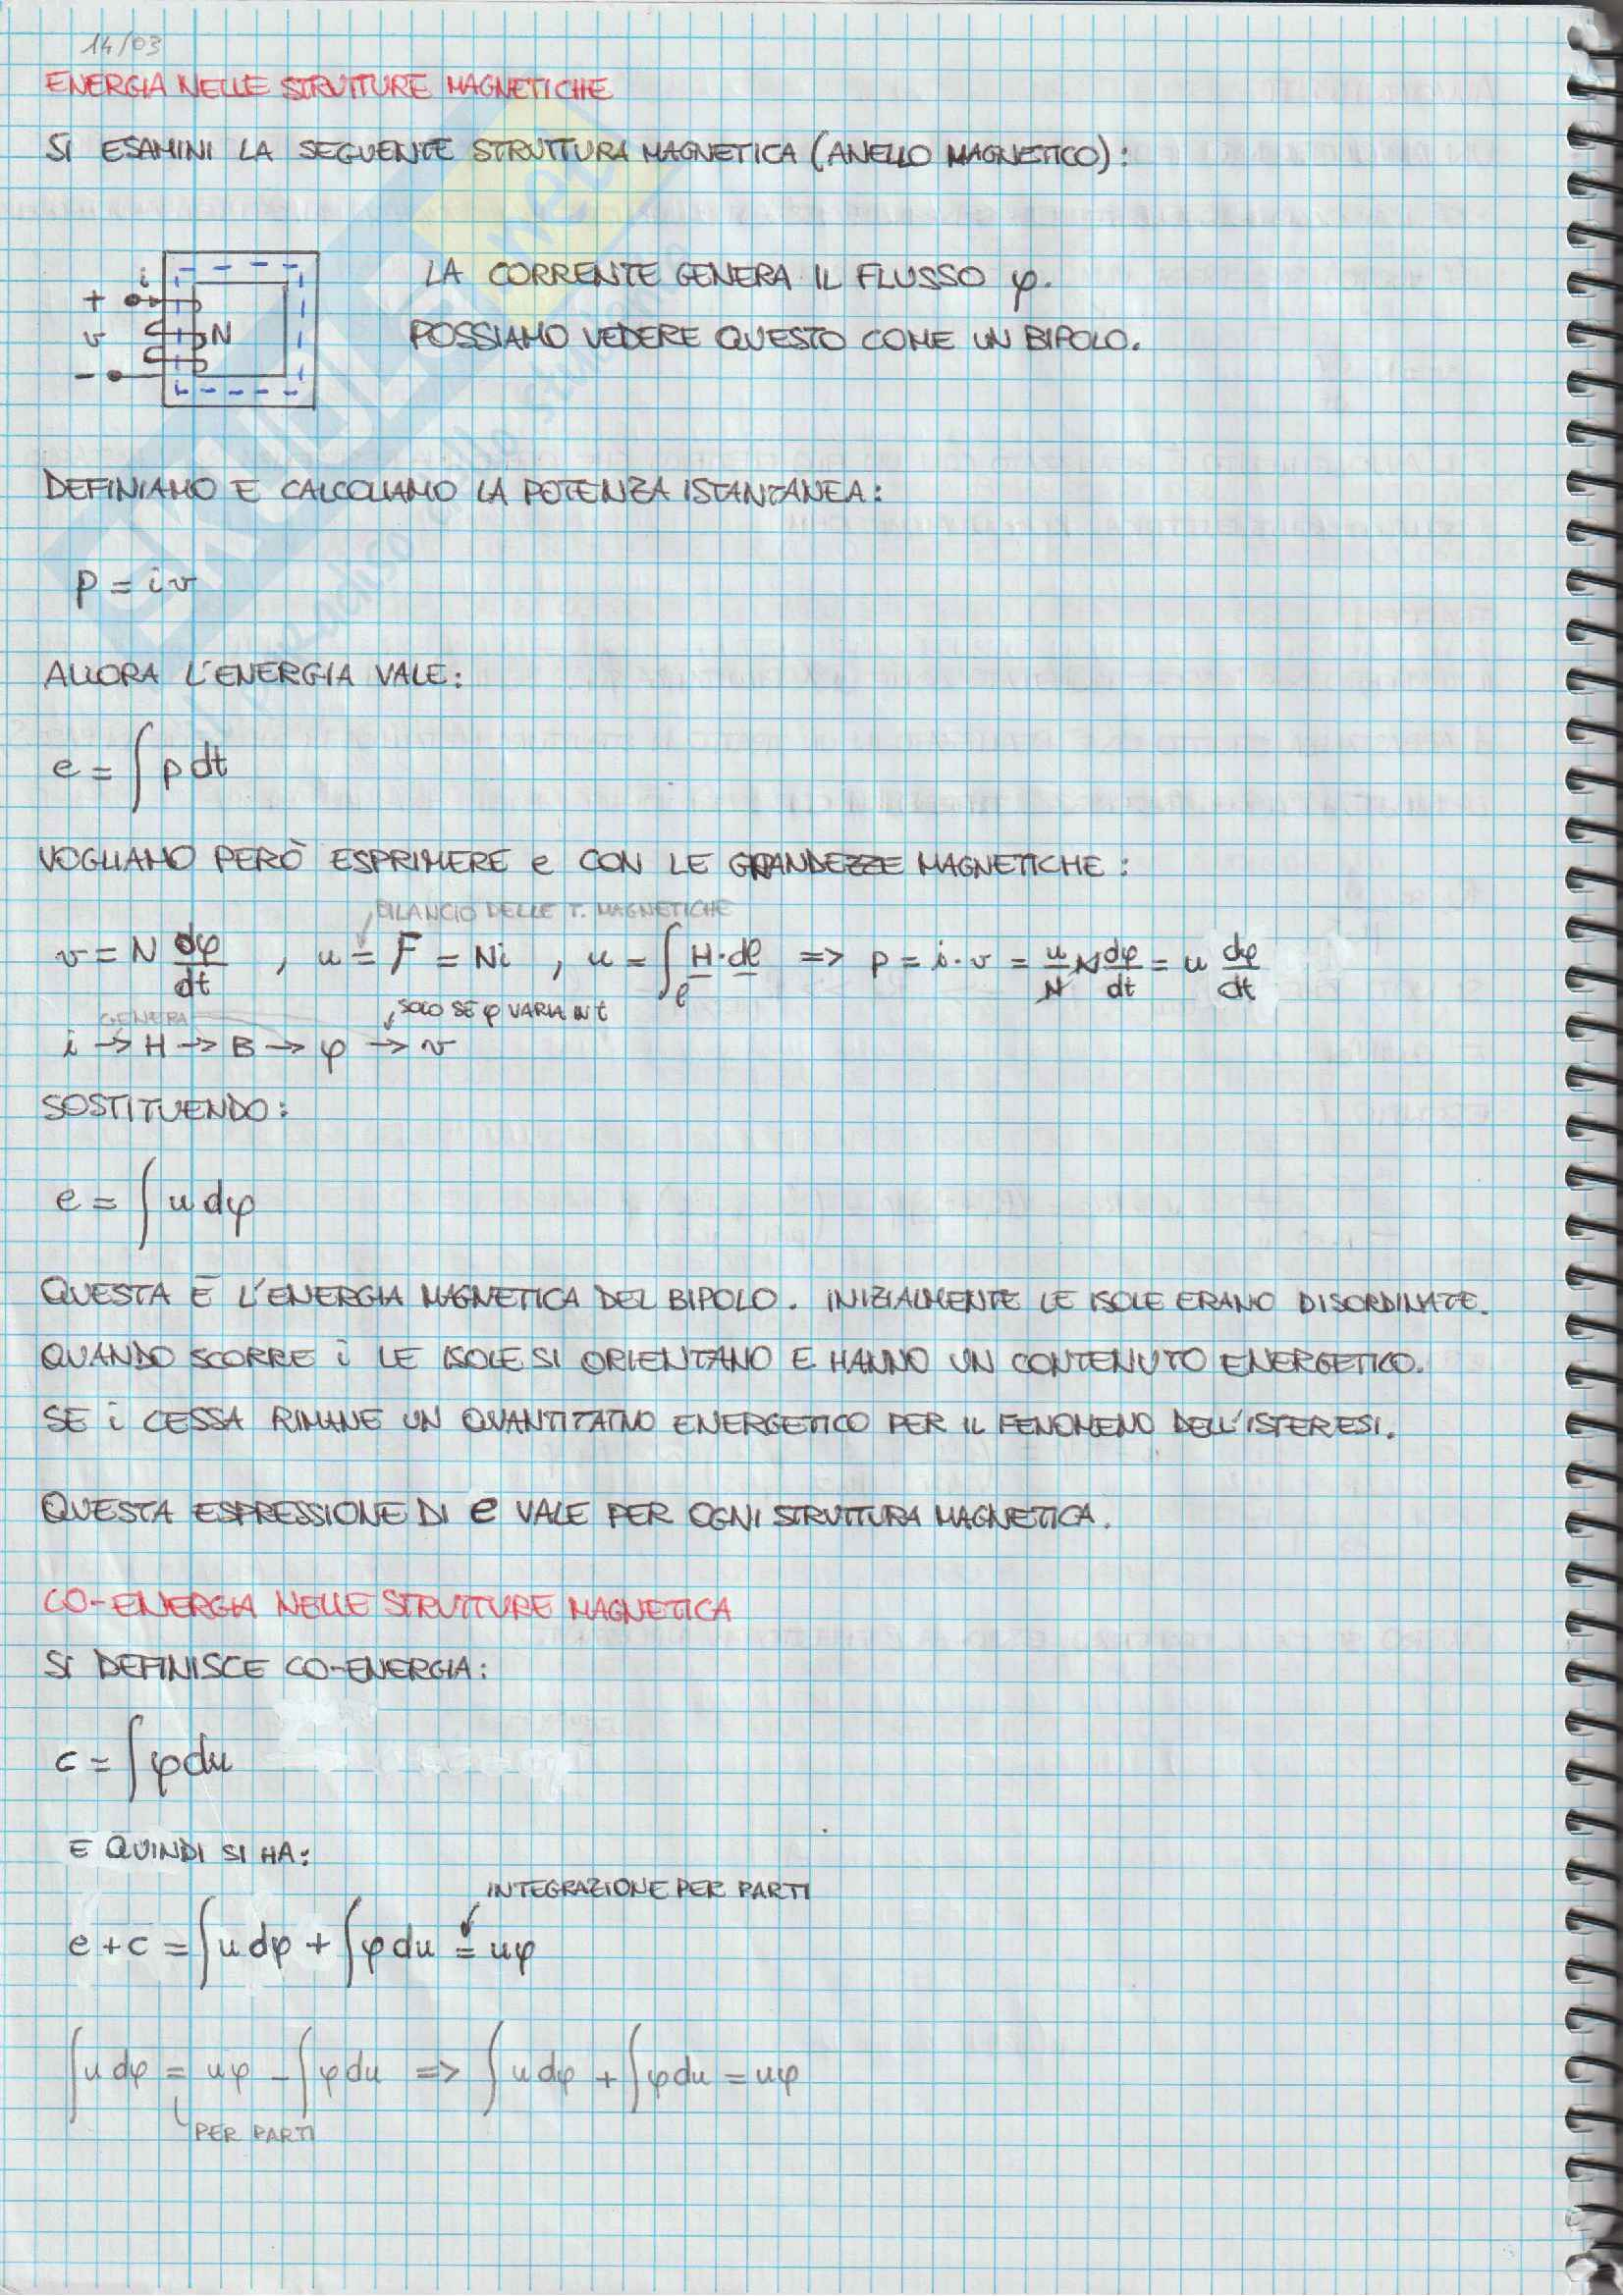 14/03
ENERGIA NELLE STRUTTURE MAGNETICHE
SI ESAMINI LA SEGUENTE STRUTTURA MAGNETICA (ANELLO MAGNETICO):
i
+
v N
-
LA CORRENTE GENERA IL FLUSSO φ.
POSSIAMO VEDERE QUESTO COME UN BIPOLO.
DEFINIAMO E CALCOLIAMO LA POTENZA ISTANTANEA:
p = iv
ALLORA L'ENERGIA VALE:
e = ∫ p dt
VOGLIAMO PERÒ ESPRIMERE e CON LE GRANDEZZE MAGNETICHE:
BILANCIO DELLE T. MAGNETICHE
v = N dφ/dt , u = F = Ni , u = ∫ℓ H·dℓ => p = i·v = u/N N dφ/dt = u dφ/dt
GENERA SOLO SE φ VARIA IN t
i → H → B → φ → v
SOSTITUENDO:
e = ∫ u dφ
QUESTA È L'ENERGIA MAGNETICA DEL BIPOLO. INIZIALMENTE LE ISOLE ERANO DISORDINATE.
QUANDO SCORRE i LE ISOLE SI ORIENTANO E HANNO UN CONTENUTO ENERGETICO.
SE i CESSA RIMANE UN QUANTITATIVO ENERGETICO PER IL FENOMENO DELL'ISTERESI.
QUESTA ESPRESSIONE DI e VALE PER OGNI STRUTTURA MAGNETICA.
CO-ENERGIA NELLE STRUTTURE MAGNETICA
SI DEFINISCE CO-ENERGIA:
c = ∫ φ du
E QUINDI SI HA:
INTEGRAZIONE PER PARTI
e + c = ∫ u dφ + ∫ φ du = uφ
∫ u dφ = uφ - ∫ φ du => ∫ u dφ + ∫ φ du = uφ
PER PARTI